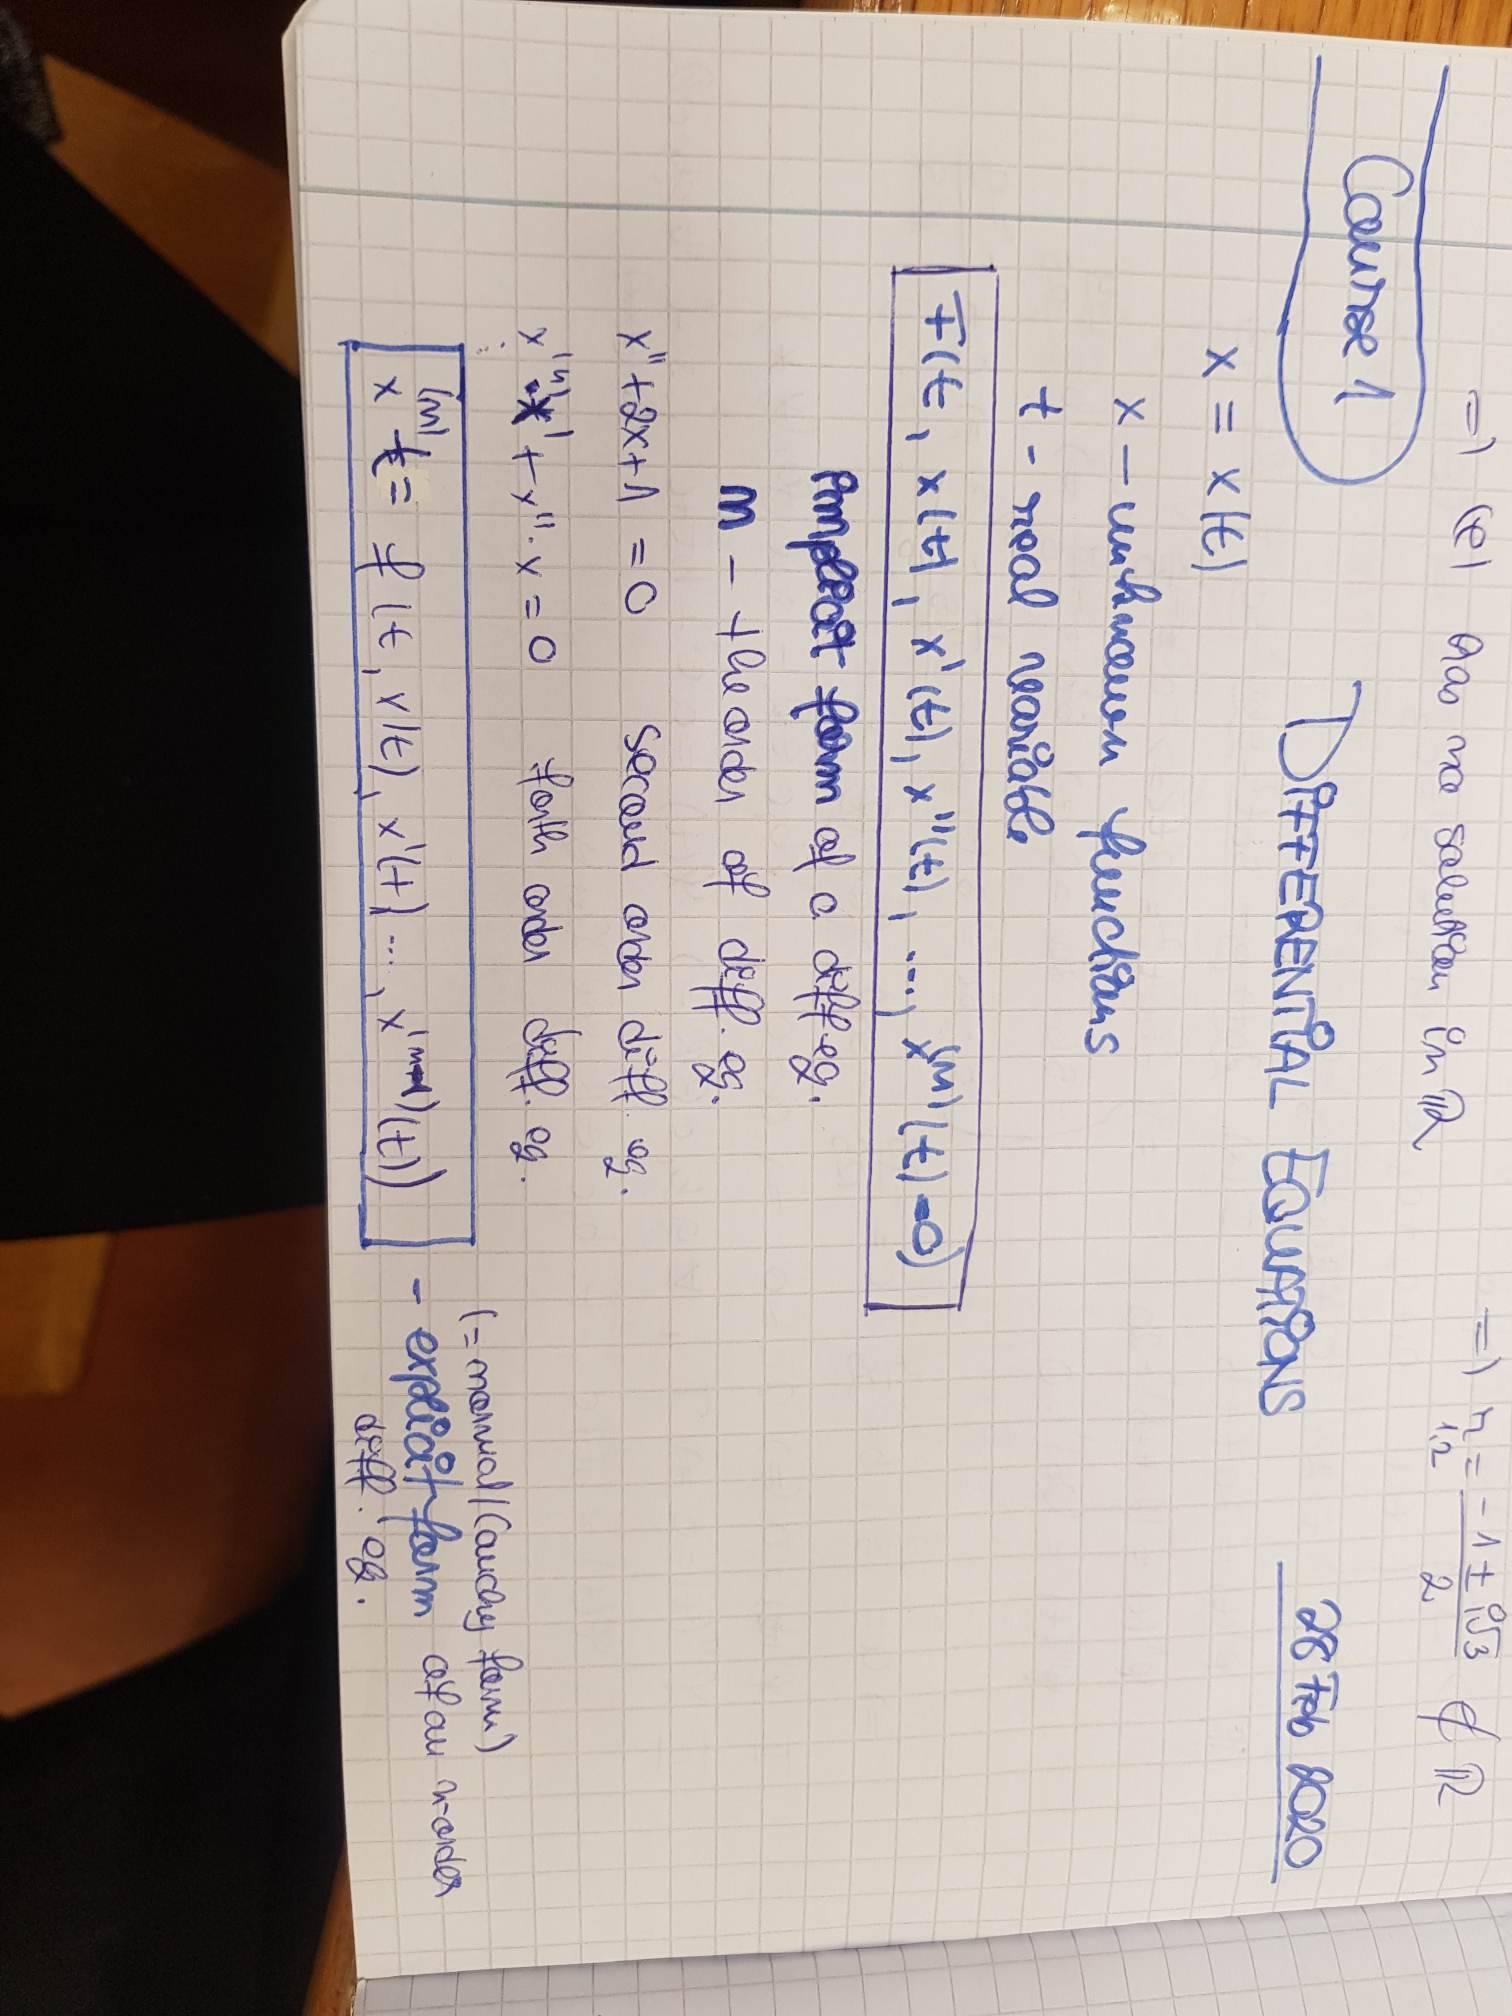 => (e) has no solution in ℝ
=> r1,2 = (-1 ± i√3)/2 ∉ ℝ
Course 1
DIFFERENTIAL EQUATIONS
28 Feb 2020
x = x(t)
x – unknown functions
t - real variable
F(t, x(t), x'(t), x''(t), ..., x^(n)(t)=0)
implicit form of a diff eq.
n – the order of diff. eq.
x''+2x+1 = 0 second order diff. eq.
x^(4)·x' + x''·x = 0 forth order diff. eq.
⋮
(= normal/Cauchy form)
x^(n) t = f(t, x(t), x'(t) ..., x^(n-1)(t)) - explicit form of an n-order
diff. eq.